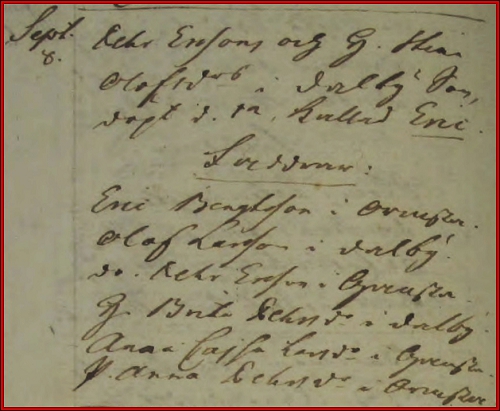 Sept. Pehr Ersons och H. Stina
8. Olofsdrs i Dalby Son,
döpt d. 12, kallad Eric
Faddrar:
Eric Bengtsson i Grensta
Olof Larsson i Dalby
dr. Pehr Erson i Grensta
H. Brita Pehrsdr i Dalby
Anna Cajsa Larsdr i Grensta
P. Anna Pehrsdr i Grensta